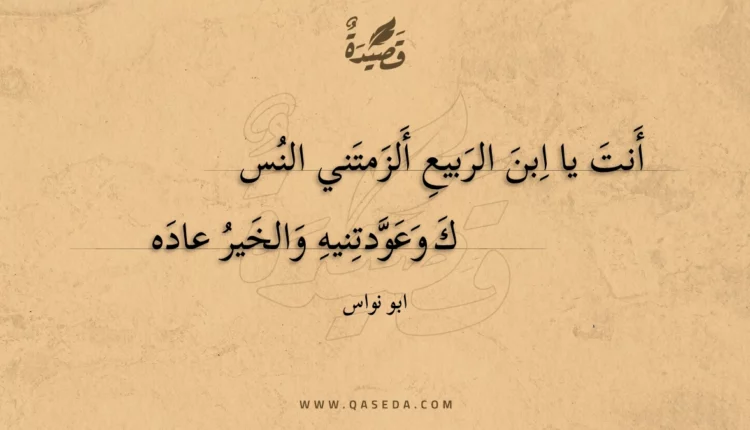 قَصِيدَةٌ
أَنتَ يا اِبنَ الرَبيعِ أَلزَمتَني النُس
كَ وَعَوَّدتِنيهِ وَالخَيرُ عادَه
ابو نواس
WWW.QASEDA.COM